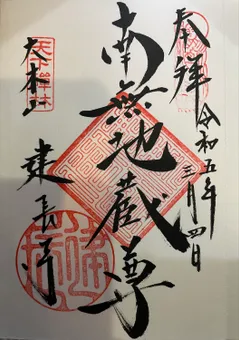 奉拝
令和五年
三月四日
南無地蔵尊
大本山
建長寺
天下禅林